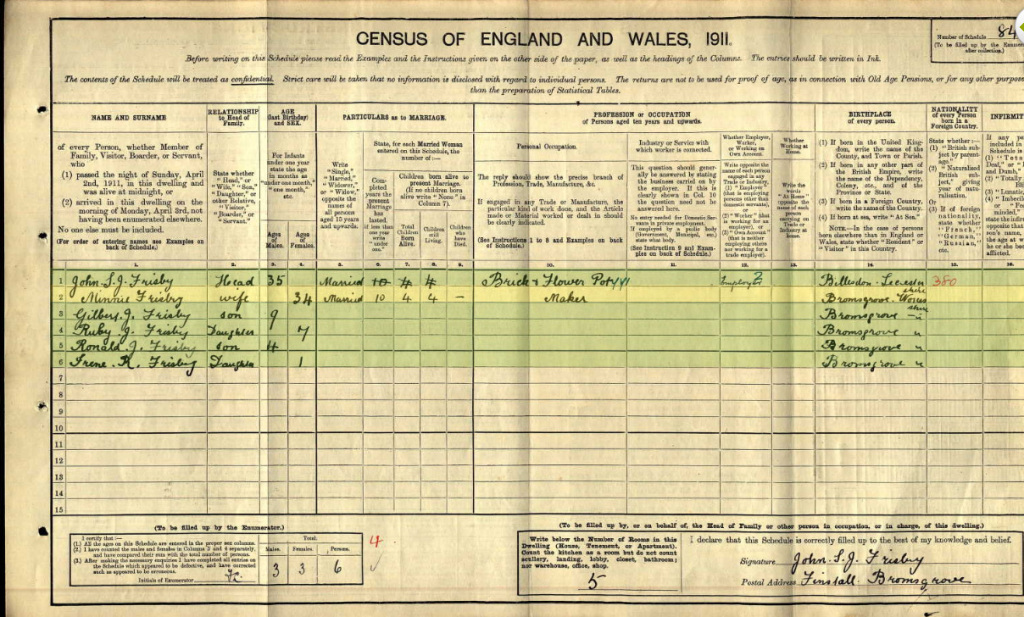 CENSUS OF ENGLAND AND WALES, 1911.
Number of Schedule 84
(To be filled up by the Enumerator after collection.)
Before writing on this Schedule please read the Examples and the Instructions given on the other side of the paper, as well as the headings of the Columns. The entries should be written in Ink.
The contents of the Schedule will be treated as confidential. Strict care will be taken that no information is disclosed with regard to individual persons. The returns are not to be used for proof of age, as in connection with Old Age Pensions, or for any other purpose
than the preparation of Statistical Tables.
NAME AND SURNAME
RELATIONSHIP to Head of Family.
AGE (last Birthday) and SEX.
PARTICULARS as to MARRIAGE.
PROFESSION or OCCUPATION
of Persons aged ten years and upwards.
BIRTHPLACE of every person.
NATIONALITY of every Person born in a Foreign Country.
INFIRMIT
of every Person, whether Member of Family, Visitor, Boarder, or Servant, who
(1) passed the night of Sunday, April 2nd, 1911, in this dwelling and was alive at midnight, or
(2) arrived in this dwelling on the morning of Monday, April 3rd, not having been enumerated elsewhere.
No one else must be included.
(For order of entering names see Examples on back of Schedule.)
State whether "Head," or "Wife," "Son," "Daughter," or other Relative, "Visitor," "Boarder," or "Servant."
For Infants under one year state the age in months as "under one month," "one month," etc.
Ages of Males.
Ages of Females.
Write "Single," "Married," "Widower," or "Widow," opposite the names of all persons aged 15 years and upwards.
State, for each Married Woman entered on this Schedule, the number of:—
Completed years the present Marriage has lasted. If less than one year write "under one."
Children born alive to present Marriage. (If no children born alive write "None" in Column 7).
Total Children Born Alive.
Children still Living.
Children who have Died.
Personal Occupation.
The reply should show the precise branch of Profession, Trade, Manufacture, &c.
If engaged in any Trade or Manufacture, the particular kind of work done, and the Article made or Material worked or dealt in should be clearly indicated.
(See Instructions 1 to 8 and Examples on back of Schedule.)
Industry or Service with which worker is connected.
This question should generally be answered by stating the business carried on by the employer. If this is clearly shown in Col. 10 the question need not be answered here.
Whether Employer, Worker, or Working on Own Account.
Whether Working at Home.
(1) If born in the United Kingdom, write the name of the County, and Town or Parish.
(2) If born in any other part of the British Empire, write the name of the Dependency, Colony, etc., and of the Province or State.
(3) If born in a Foreign Country, write the name of the Country.
(4) If born at sea, write "At Sea."
NOTE.—In the case of persons born elsewhere than in England or Wales, state whether "Resident" or "Visitor" in this Country.
1 John S. J. Frisby Head 35 Married 10 4 4 Brick & Flower Pot Employer 2 Leicester 380
2 Minnie Frisby wife 34 Married 10 4 4 – Maker Bromsgrove
3 Gilbert J. Frisby son 9 Bromsgrove "
4 Ruby J. Frisby Daughter 7 Bromsgrove "
5 Ronald J. Frisby son 4 Bromsgrove "
6 Irene R. Frisby Daughter 1 Bromsgrove "
7
8
9
10
11
12
13
14
15
(To be filled up by the Enumerator.)
(To be filled up by, or on behalf of, the Head of Family or other person in occupation, or in charge, of this dwelling.)
I certify that:—
(1.) All the ages on this Schedule are entered in the proper sex columns.
(2.) I have counted the males and females in Columns 3 and 4 separately, and have compared their sum with the total number of persons.
(3.) After making the necessary enquiries I have completed all entries on the Schedule which appeared to be defective, and have corrected such as appeared to be erroneous.
Initials of Enumerator
Total.
Males. Females. Persons.
3 3 6
4
Write below the Number of Rooms in this Dwelling (House, Tenement, or Apartment). Count the kitchen as a room but do not count scullery, landing, lobby, closet, bathroom; nor warehouse, office, shop.
5
I declare that this Schedule is correctly filled up to the best of my knowledge and belief.
Signature John. S. J. Frisby
Postal Address Finstall Bromsgrove